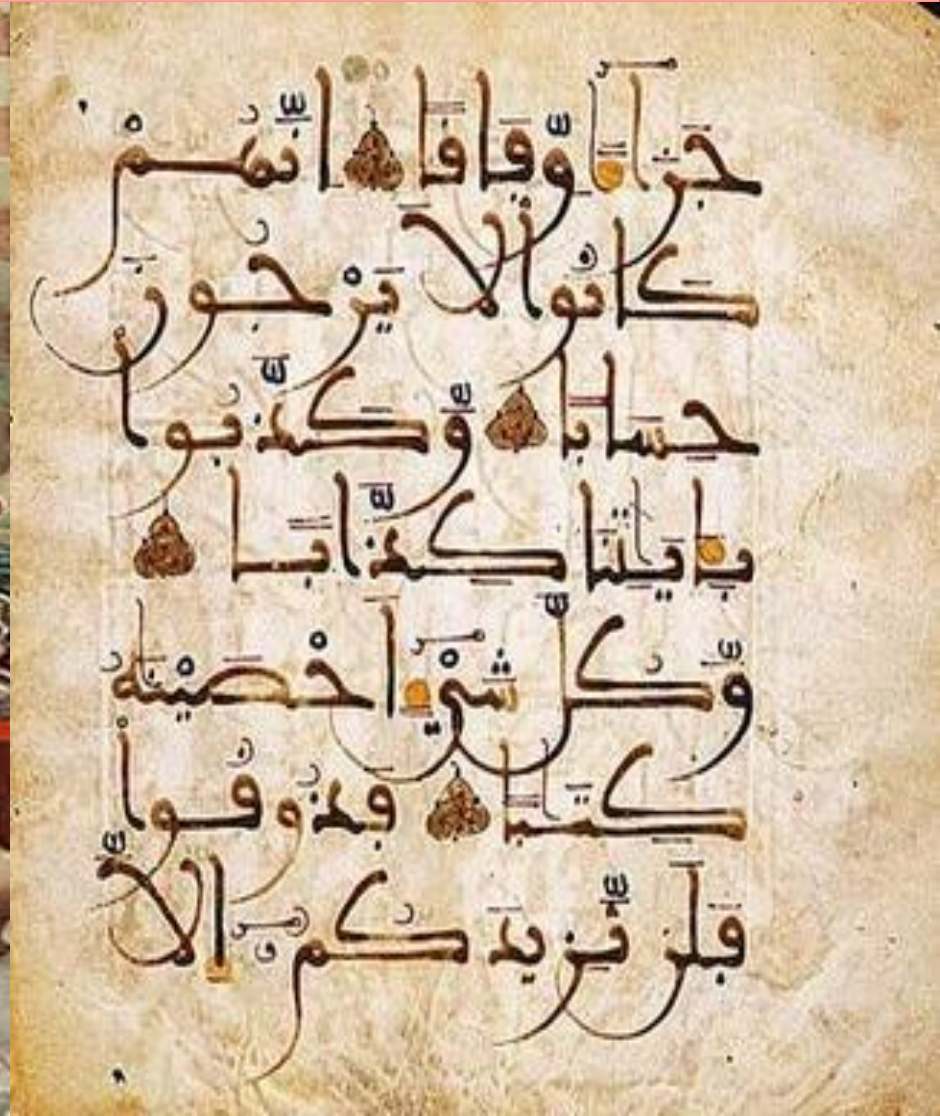 جَزَآءً وِّفَاقًا اِنَّهُمْ
كَانُوا لَا يَرْجُونَ
حِسَابًا وَّكَذَّبُوا
بِـَٔايَٰتِنَا كِذَّابًا
وَّكُلَّ شَيْءٍ اَحْصَيْنَٰهُ
كِتَٰبًا فَذُوقُوا
فَلَن نَّزِيدَكُمُ اِلَّا